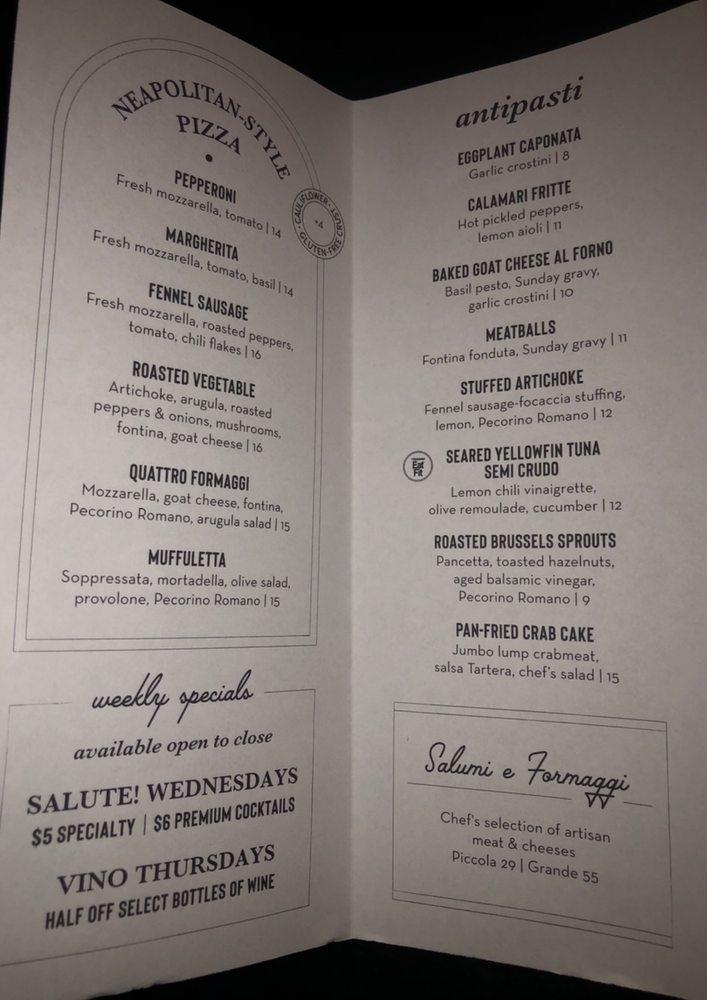 NEAPOLITAN-STYLE
PIZZA
PEPPERONI
Fresh mozzarella, tomato | 14
CAULIFLOWER CRUST
+4
GLUTEN-FREE
MARGHERITA
Fresh mozzarella, tomato, basil | 14
FENNEL SAUSAGE
Fresh mozzarella, roasted peppers,
tomato, chili flakes | 16
ROASTED VEGETABLE
Artichoke, arugula, roasted
peppers & onions, mushrooms,
fontina, goat cheese | 16
QUATTRO FORMAGGI
Mozzarella, goat cheese, fontina,
Pecorino Romano, arugula salad | 15
MUFFULETTA
Soppressata, mortadella, olive salad,
provolone, Pecorino Romano | 15
weekly specials
available open to close
SALUTE! WEDNESDAYS
$5 SPECIALTY | $6 PREMIUM COCKTAILS
VINO THURSDAYS
HALF OFF SELECT BOTTLES OF WINE
antipasti
EGGPLANT CAPONATA
Garlic crostini | 8
CALAMARI FRITTE
Hot pickled peppers,
lemon aioli | 11
BAKED GOAT CHEESE AL FORNO
Basil pesto, Sunday gravy,
garlic crostini | 10
MEATBALLS
Fontina fonduta, Sunday gravy | 11
STUFFED ARTICHOKE
Fennel sausage-focaccia stuffing,
lemon, Pecorino Romano | 12
Eat Fit
SEARED YELLOWFIN TUNA
SEMI CRUDO
Lemon chili vinaigrette,
olive remoulade, cucumber | 12
ROASTED BRUSSELS SPROUTS
Pancetta, toasted hazelnuts,
aged balsamic vinegar,
Pecorino Romano | 9
PAN-FRIED CRAB CAKE
Jumbo lump crabmeat,
salsa Tartera, chef's salad | 15
Salumi e Formaggi
Chef's selection of artisan
meat & cheeses
Piccola 29 | Grande 55